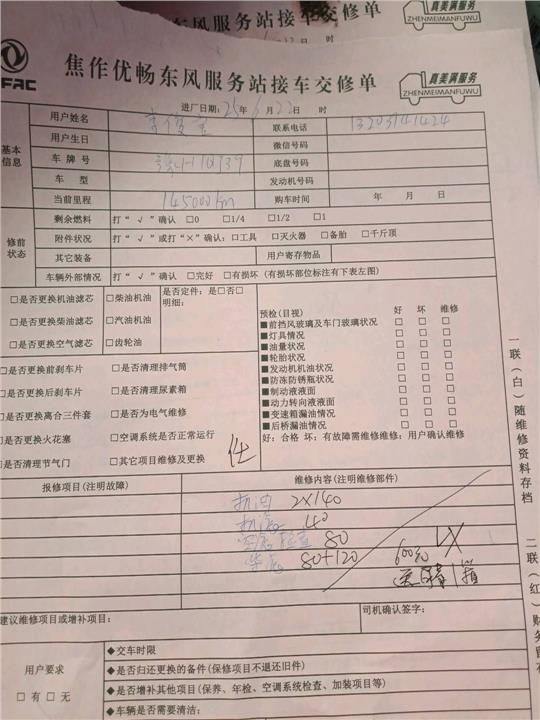 东风服务站接车交修单
ZHENMEIMANFUWU
焦作优畅东风服务站接车交修单
真美满服务
ZHENMEIMANFUWU
进厂日期：25年6月22日 时
基本信息
用户姓名
联系电话
用户生日
微信号码
车 牌 号
底盘号码
车 型
发动机号码
当前里程 145000km
购车时间 年 月 日
修前状态
剩余燃料 打“ √ ”确认 □0 □1/4 □1/2 □1
附件状况 打“ √ ”或打“×”确认：□工具 □灭火器 □备胎 □千斤顶
其它装备 用户寄存物品
车辆外部情况 打“ √ ”确认 □完好 □有损坏（有损坏部位标注有下表左图）
□是否更换机油滤芯 □柴油机油 是否定件：是□否□
明细：
□是否更换柴油滤芯 □汽油机油
□是否更换空气滤芯 □齿轮油
□是否更换前刹车片 □是否清理排气筒
□是否更换后刹车片 □是否清理尿素箱
□是否更换离合三件套 □是否为电气维修
□是否更换火花塞 □空调系统是否正常运行
□是否清理节气门 □其它项目维修及更换
预检（目视） 好 坏 维修
■前挡风玻璃及车门玻璃状况 □ □ □
■灯具情况 □ □ □
■油量状况 □ □ □
■轮胎状况 □ □ □
■发动机机油状况 □ □ □
■防冻防锈瓶状况 □ □ □
■制动液液面 □ □ □
■动力转向液液面 □ □ □
■变速箱漏油情况 □ □ □
■后桥漏油情况 □ □ □
好：合格 坏：有故障需维修维修：用户确认维修
报修项目（注明故障） 维修内容（注明维修部件）
机油 2×140
40
80
80+120
600元
建议维修项目或增补项目：
司机确认签字：
用户要求
□ 有 □ 无
◆交车时限
◆是否归还更换的备件（保修项目不退还旧件）
◆是否增补其他项目（保养、年检、空调系统检查、加装项目等）
◆车辆是否需要清洁：
一联（白）随维修资料存档
二联（红）财务